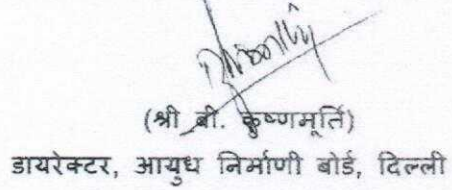 (श्री बी. कृष्णमूर्ति)
डायरेक्टर, आयुध निर्माणी बोर्ड, दिल्ली